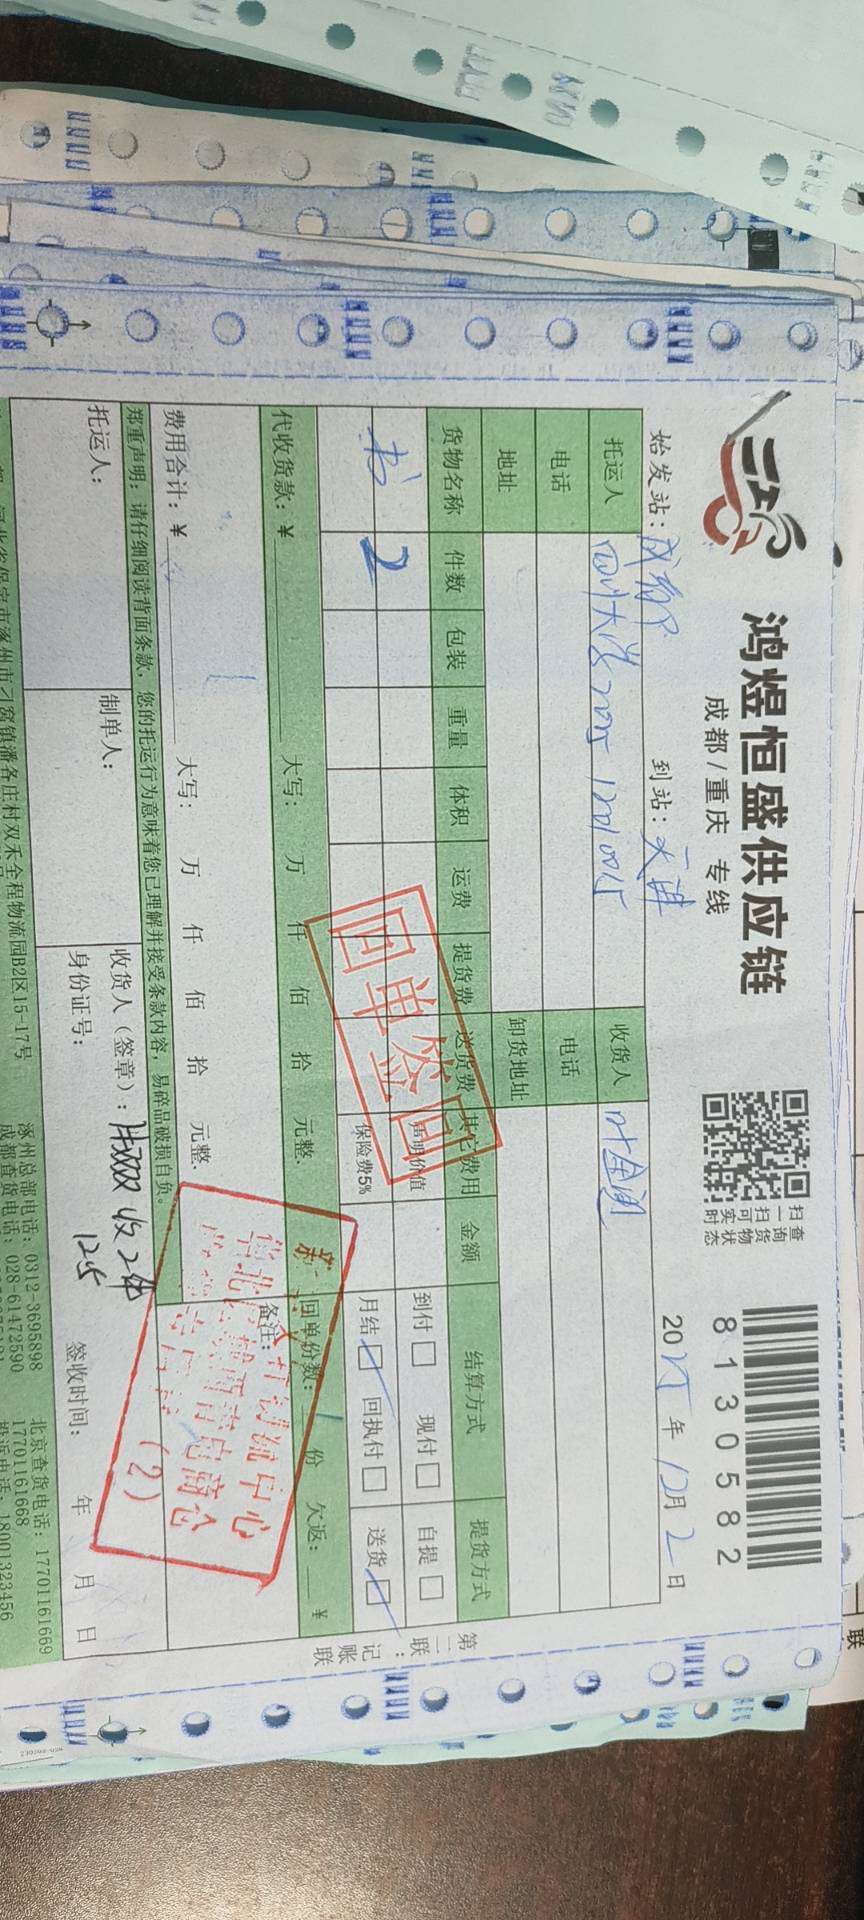 鸿煜恒盛供应链
成都/重庆 专线
扫一扫可实时
查询货物状态
8130582
始发站：成都 到站：天津 2025年12月2日
托运人 四川大学 2025 1201 0015 收货人 叶金润
电话 电话
地址 卸货地址
货物名称 件数 包装 重量 体积 运费 提货费 送货费 其它费用 金额 结算方式 提货方式
书 2 声明价值 到付 现付 自提
保险费5% 月结 回执付 送货
回单签回
代收货款：¥ 大写： 万 仟 佰 拾 元整. 回单份数： 份 欠返： ¥
费用合计：¥ 大写： 万 仟 佰 拾 元整. 备注：
中心
(2)
郑重声明：请仔细阅读背面条款，您的托运行为意味着您已理解并接受条款内容，易碎品破损自负。
托运人： 制单人： 收货人（签章）： 收2件
身份证号： 12.5 签收时间： 年 月 日
河北省保定市涿州市刁窝镇潘各庄村双禾全程物流园B2区15-17号 涿州总部电话：0312-3695898 北京查货电话：17701161669
成都查货电话：028-61472590 17701161668
投诉电话：18001323456
第二联：记账联